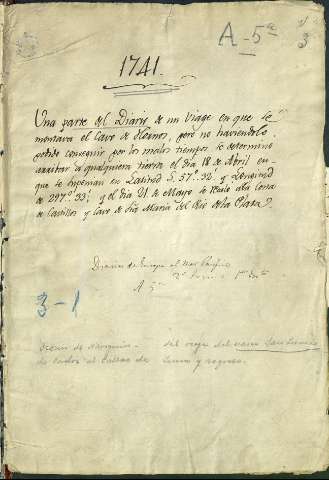 A - 5ª
3
1741.
Una parte del Diario de un Viage en que se
montava el Cavo de Hornos, pero no haviendolo
podido conseguir por los malos tiempos se determinò
arribar à qualquiera tierra el dia 18 de Abril en
que se hallavan en Latitud S. 57º.32' y Longitud
de 297º.33'; y el dia 21 de Mayo se varò a la Costa
de Castillos y Cavo de Sta. Maria del Rio de la Plata
Diarios de Europa al Mar Pacifico
A 5ª
3-1
Diario de Navegacion del viage del navio
de Cadiz al Callao de Lima y regreso.